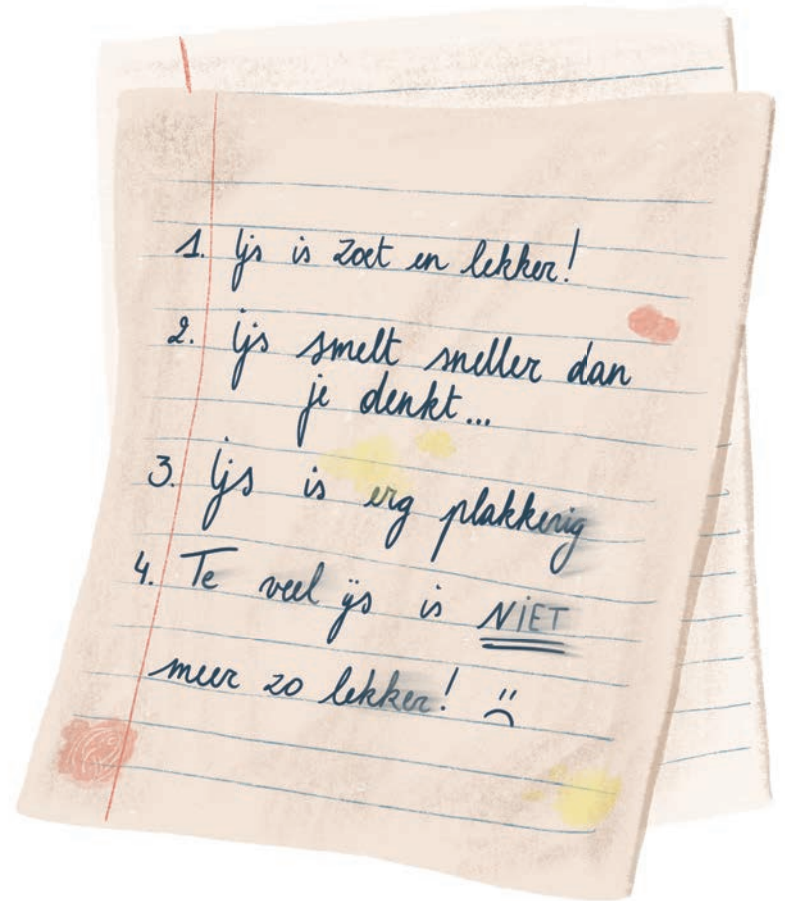 1. Ijs is zoet en lekker!
2. ijs smelt sneller dan
je denkt...
3. Ijs is erg plakkerig
4. Te veel ijs is NIET
meer zo lekker! :(